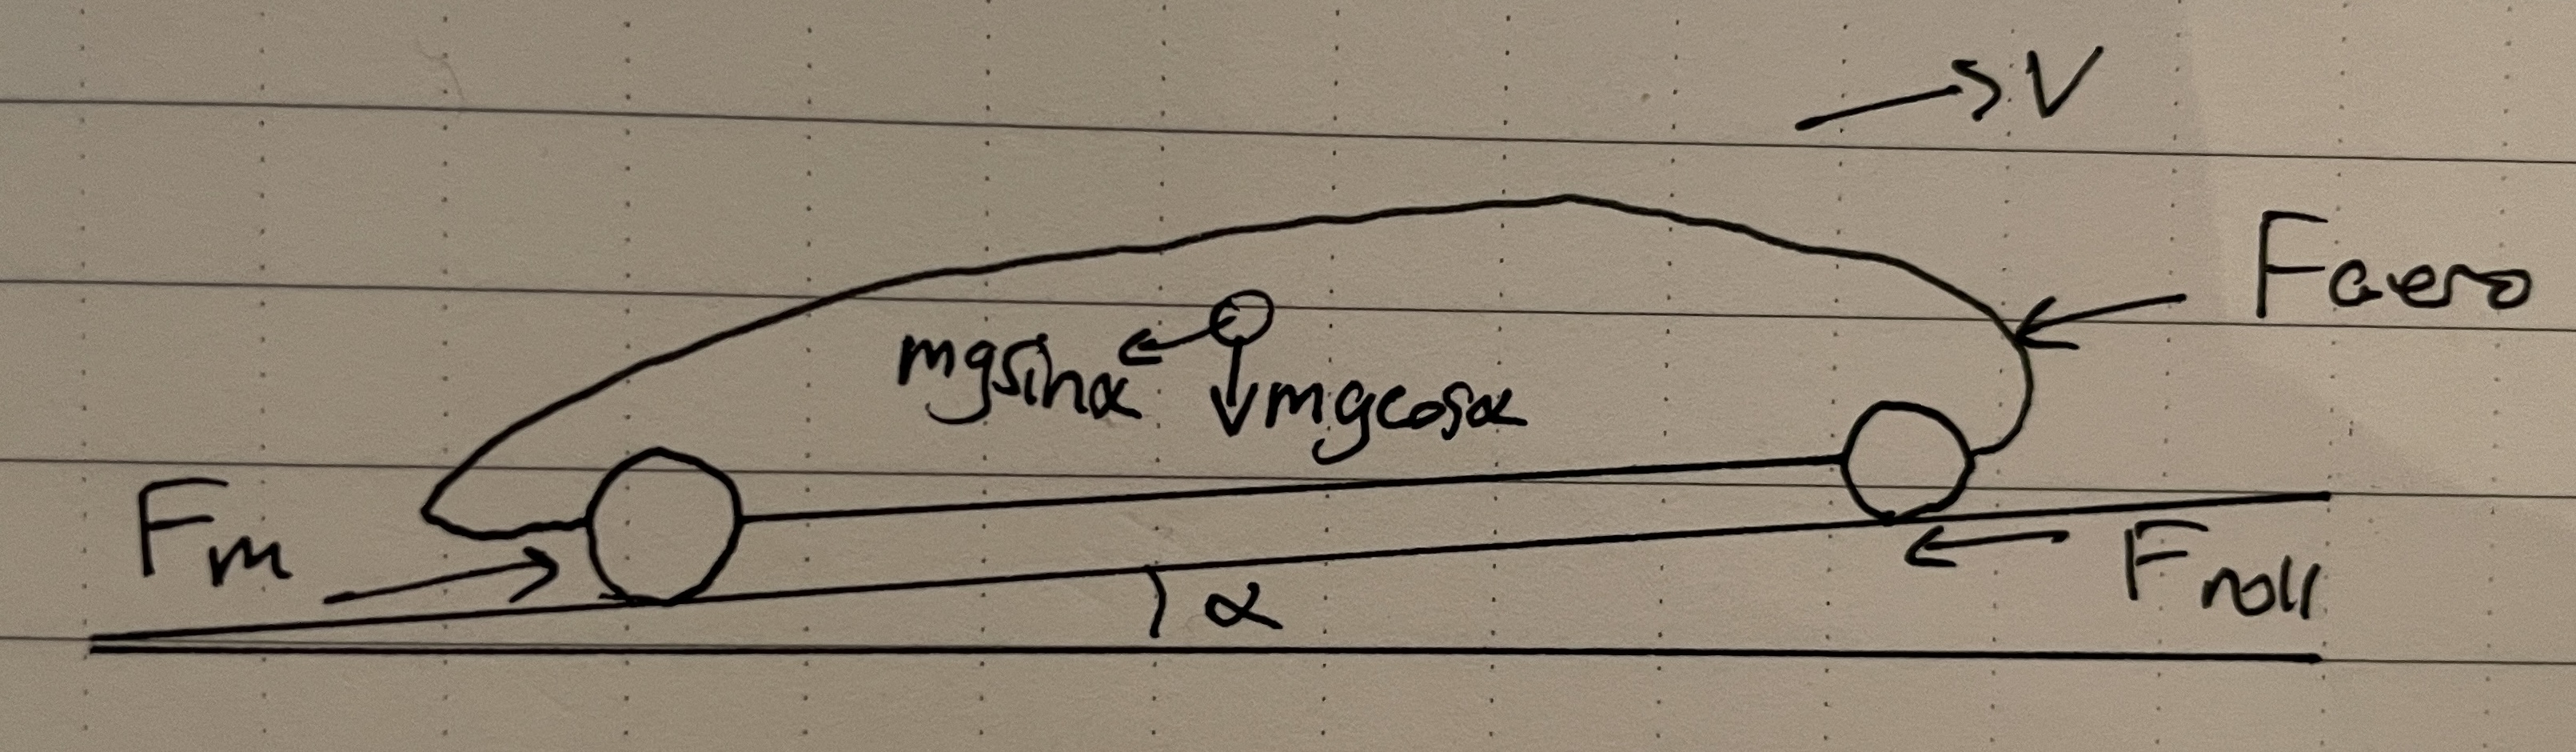 V
Faero
mgsinα
mgcosα
Fm
α
Froll